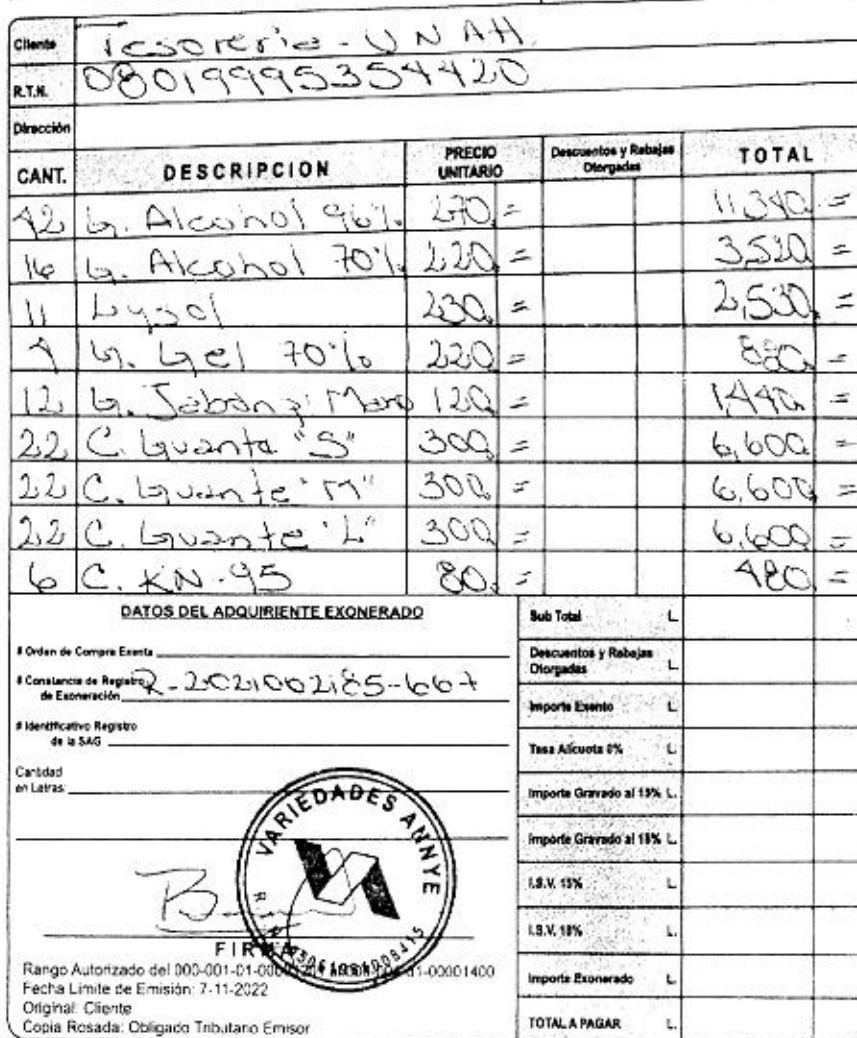 Cliente Tesoreria - UNAH
R.T.N. 08019995354420
Dirección
CANT. DESCRIPCION PRECIO UNITARIO Descuentos y Rebajas Otorgadas TOTAL
42 G. Alcohol 96% 270,= 11,340,=
16 G. Alcohol 70% 220,= 3,520,=
11 Lysol 230,= 2,530,=
4 G. Gel 70% 220,= 880,=
12 G. Jabon Mano 120,= 1,440,=
22 C. Guante "S" 300,= 6,600,=
22 C. Guante "M" 300,= 6,600,=
22 C. Guante "L" 300,= 6,600,=
6 C. KN-95 80,= 480,=
DATOS DEL ADQUIRIENTE EXONERADO
# Orden de Compra Exenta
# Constancia de Registro de Exoneración R-2021002185-667
# Identificativo Registro de la SAG
Cantidad en Letras
VARIEDADES ANNYE
FIRMA
Rango Autorizado del 000-001-01-00001400
Fecha Limite de Emisión: 7-11-2022
Original: Cliente
Copia Rosada: Obligado Tributario Emisor
Sub Total L.
Descuentos y Rebajas Otorgadas L.
Importe Exento L.
Tasa Alicuota 0% L.
Importe Gravado al 15% L.
Importe Gravado al 18% L.
I.S.V. 15% L.
I.S.V. 18% L.
Importe Exonerado L.
TOTAL A PAGAR L.